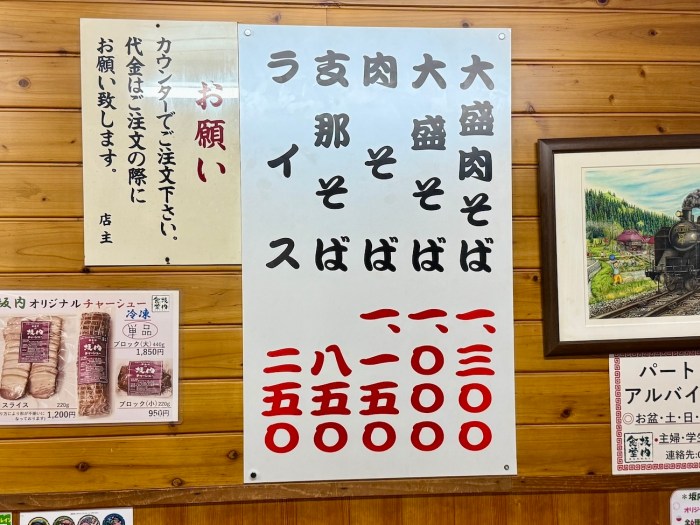 お願い
カウンターでご注文下さい。
代金はご注文の際に
お願い致します。
店主
大盛肉そば 一、三〇〇
大盛そば 一、〇〇〇
肉そば 一、一五〇
支那そば 八五〇
ライス 二五〇
坂内オリジナルチャーシュー
坂内食堂
冷凍
単品
ブロック(大) 440g
1,850円
スライス 220g
1,200円
ブロック(小) 220g
950円
パート
アルバイ
◎お盆・土・日・
・主婦・学生
連絡先:0
坂内食堂